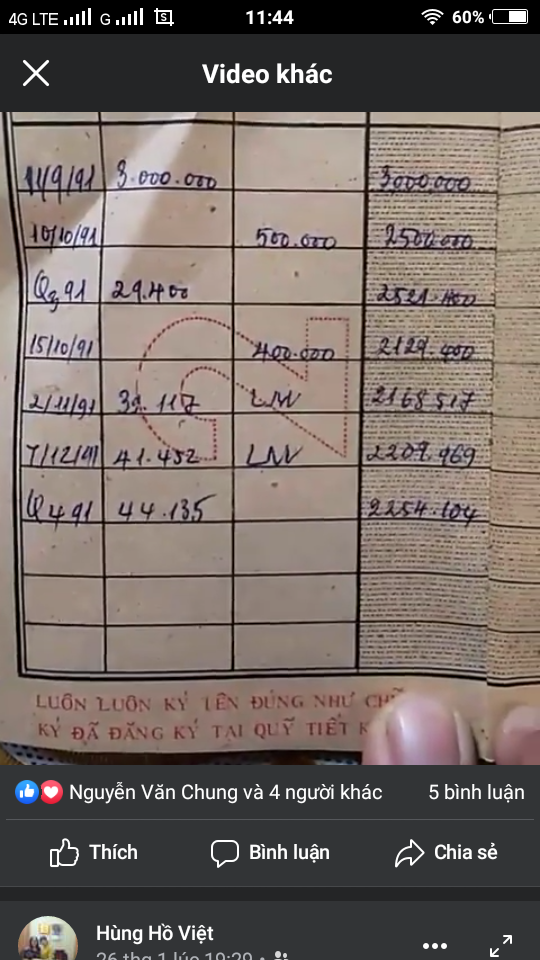 4G LTE G 11:44 60%
Video khác
11/9/91 3.000.000 3000.000
10/10/91 500.000 2500.000
Q3 91 29.400 2529.400
15/10/91 400.000 2129.400
2/11/91 39.117 LN 2168517
7/12/91 41.452 LN 2209.969
Q4 91 44.135 2254.104
LUÔN LUÔN KÝ TÊN ĐÚNG NHƯ CHỮ
KÝ ĐÃ ĐĂNG KÝ TẠI QUỸ TIẾT K
Nguyễn Văn Chung và 4 người khác 5 bình luận
Thích Bình luận Chia sẻ
Hùng Hồ Việt
26 thg 1 lúc 19:29